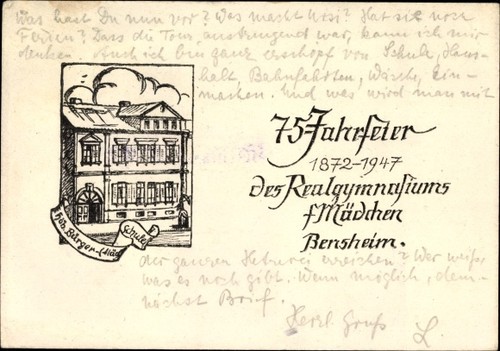 was hast Du nun vor? Was macht Resi? Hat sie noch
Ferien? Dass die Tour anstrengend war, kann ich mir
denken. Auch ich bin ganz erschöpft von Schule, Haus-
halt, Bahnfahrten, Wäsche, Ein-
machen. Und was wird man mit
75 Jahrfeier
1872-1947
des Realgymnasiums
f. Mädchen
Bensheim.
Höh. Bürger-(Mäd
Schule
der ganzen erreichen? Wer weiß,
was es noch gibt. Wenn möglich, dem-
nächst Brief.
Herzl. Gruß
L